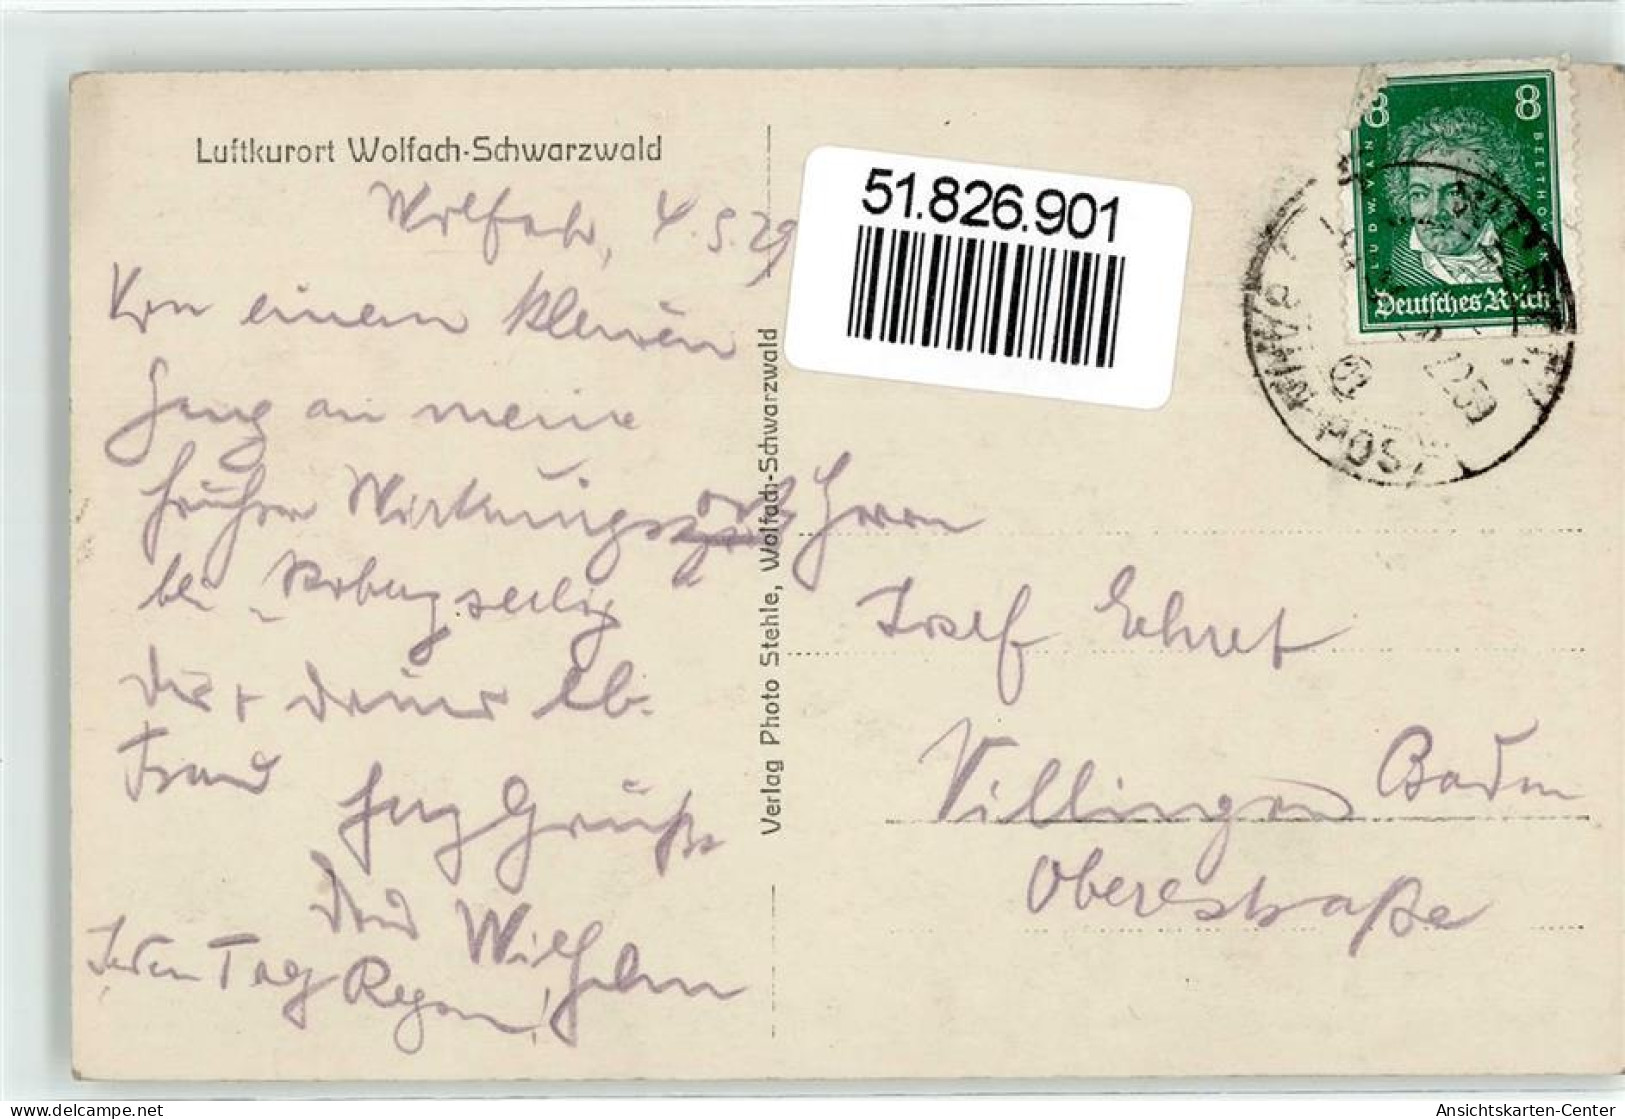 Luftkurort Wolfach-Schwarzwald
Wolfach, 4.5.29
Von einem kleinen
Gang an meine
frühern Wirkungsort
bei
Dir + Deiner lb.
Frau
herzl Grüße
Dein Wilhelm
Jeden Tag Regen!
Verlag Photo Stehle, Wolfach-Schwarzwald
51.826.901
8 8
LUDW. VAN BEETHOVEN
Deutsches Reich
BAHNPOST
Herrn
Josef Ehret
Villingen Baden
Oberestraße
www.delcampe.net
Ansichtskarten-Center